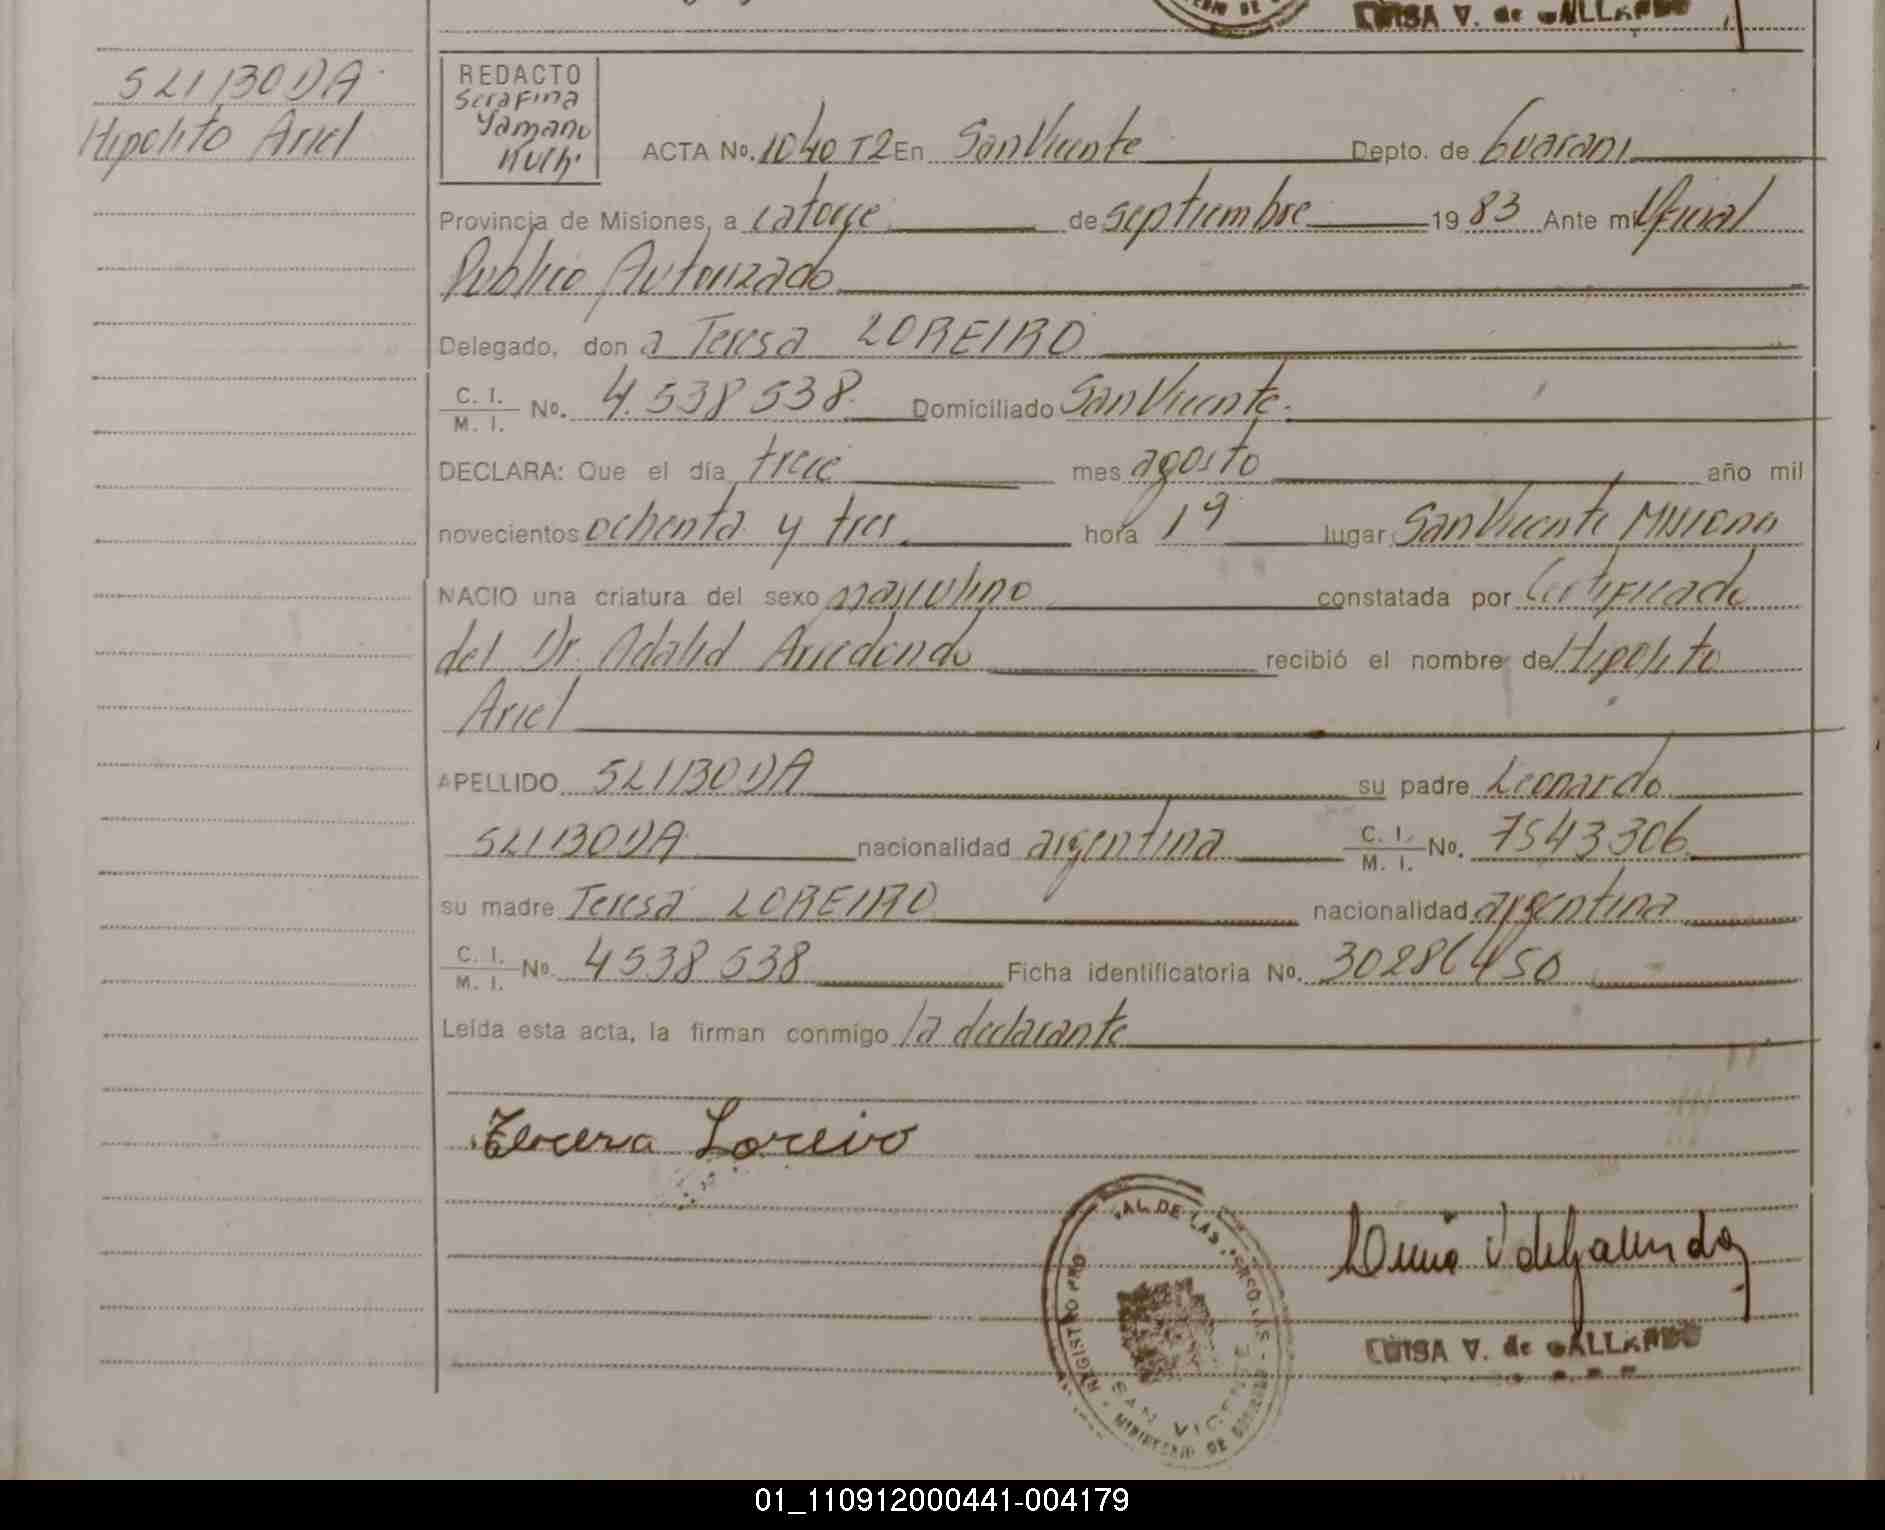 LUISA V. de GALLARDO
SLIBODA
Hipolito Ariel
REDACTO
Serafina
Yamano
Kuch
ACTA No. 1040 T2 En San Vicente Depto. de Guarani
Provincia de Misiones, a catorce de septiembre 1983 Ante mi Oficial
Publico Autorizado
Delegado, don a Teresa LOREIRO
C. I. / M. I. No. 4.538538 Domiciliado San Vicente.
DECLARA: Que el día trece mes agosto año mil
novecientos ochenta y tres hora 19 lugar San Vicente Misiones
NACIO una criatura del sexo masculino constatada por Certificado
del Dr. Adalid Arredondo recibió el nombre de Hipolito
Ariel
APELLIDO SLIBODA su padre Leonardo
SLIBODA nacionalidad argentina C. I. / M. I. No. 7543306
su madre Teresa LOREIRO nacionalidad argentina
C. I. / M. I. No. 4538538 Ficha identificatoria No. 30286450
Leída esta acta, la firman conmigo la declarante
Teresa Loreiro
REGISTRO PRO AL DE LAS PERSONAS
SAN VICENTE
MINISTERIO DE GOBIERNO
LUISA V. de GALLARDO
01_110912000441-004179